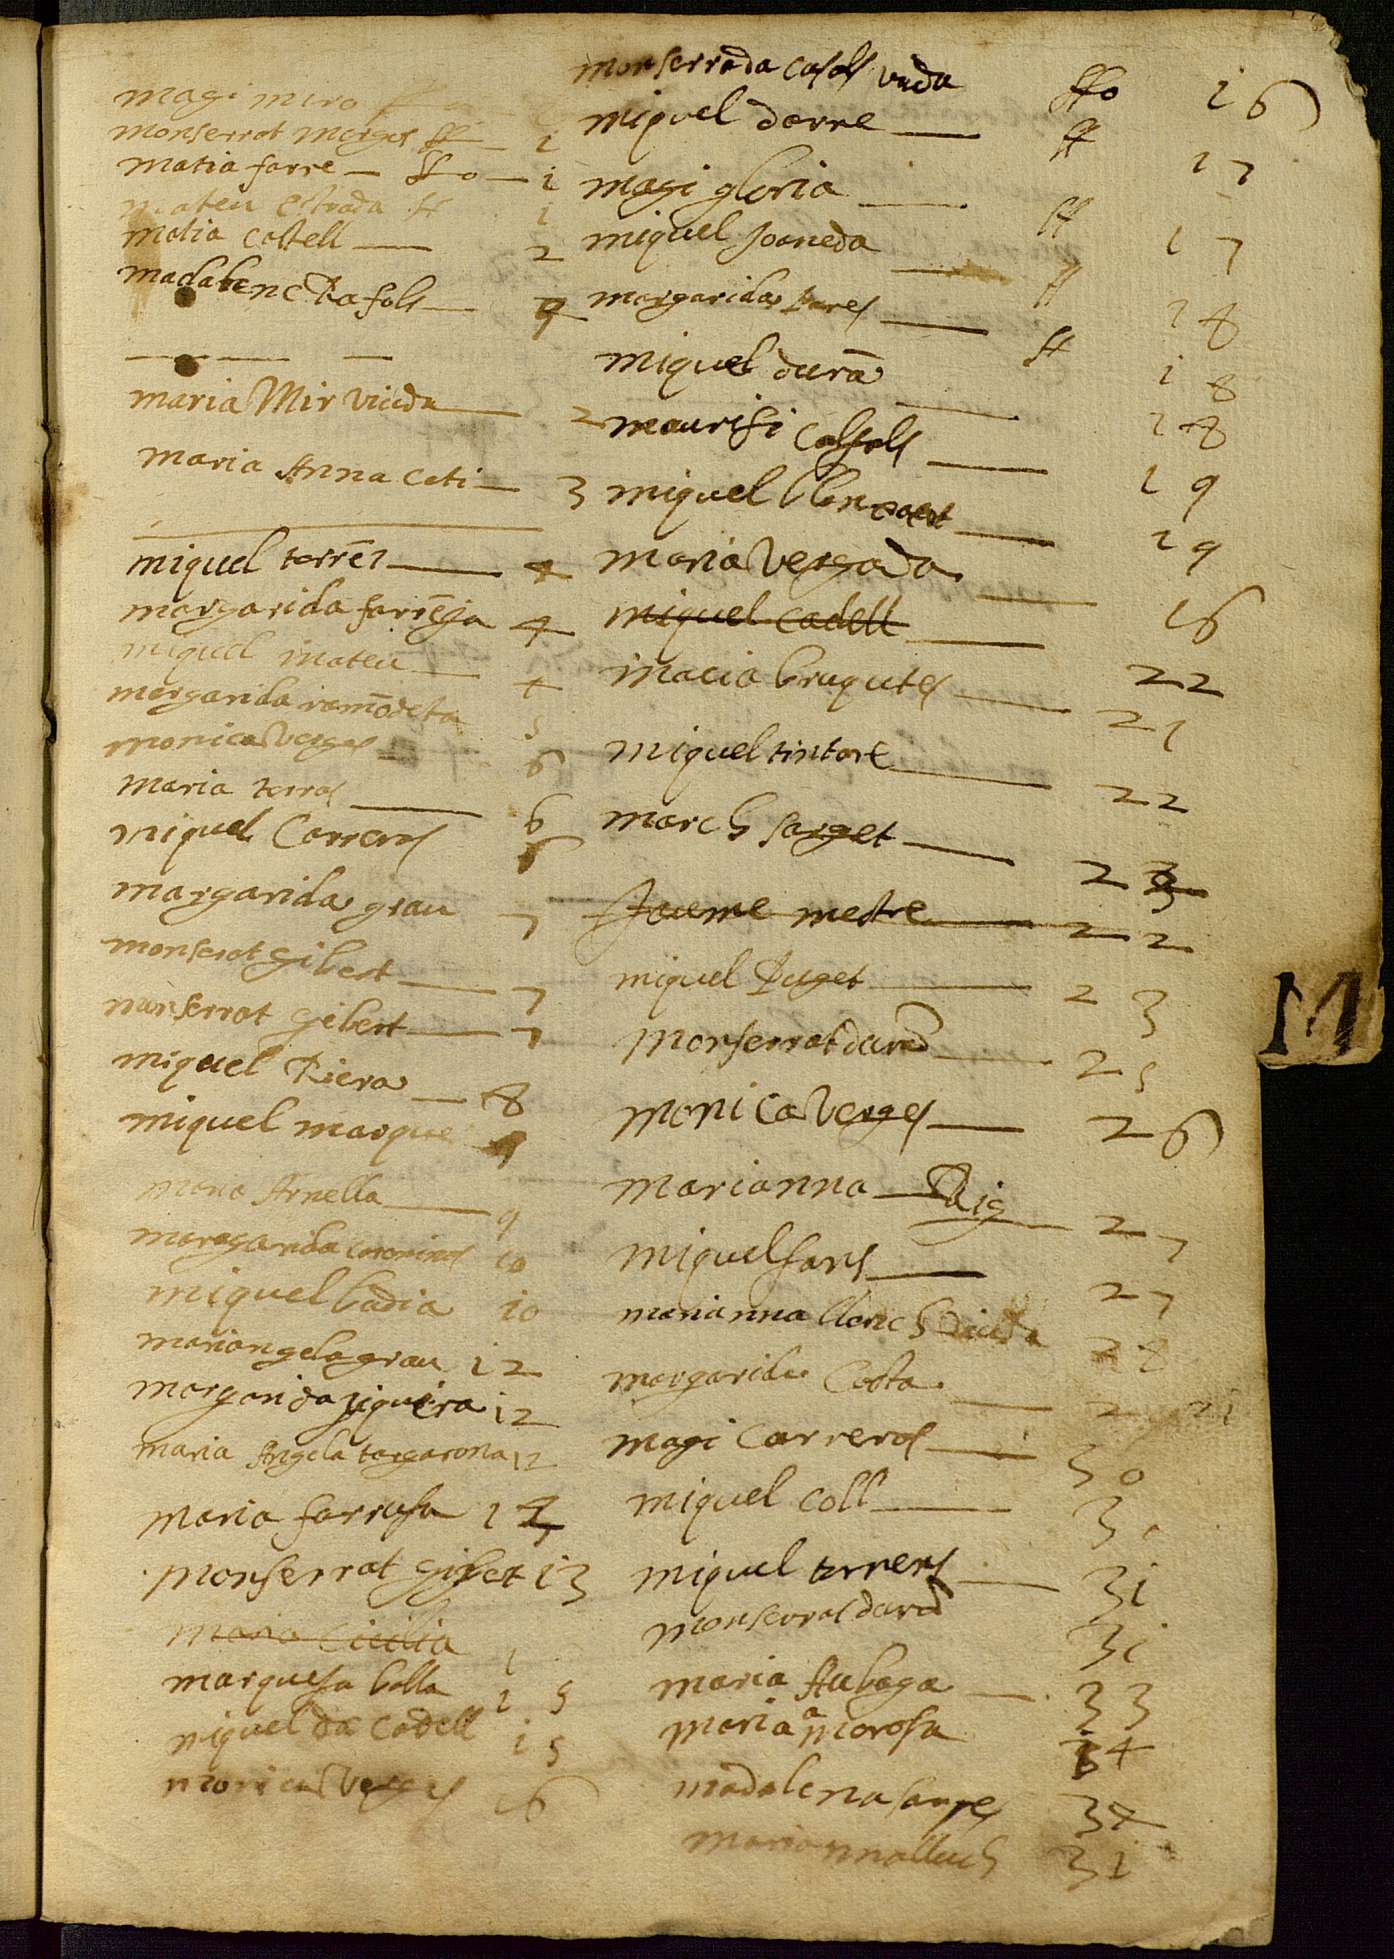 magi miro
monserrat Verges ff 1
matia farre ffo 1
mateu Estrada ff 1
matia castell 2
madalena Rafols 9
maria Mir viuda 2
maria Anna Coti 3
miquel torrēs 4
margarida farrēja 4
miquel mateu 4
margarida ramōdeta 5
monica Verges 6
maria torras 6
miquel Carreras 6
margarida grau 7
monserat gibert 7
monserrat gibert 7
miquel Riera 8
miquel marque 9
maria Arnella 9
maragarida corominas 10
miquel badia 10
mariangela grau 12
margarida figueira 12
maria Angela taragona 12
maria farrusa 14
monserrat gibet 13
maria Cicilia 1
marquesa bolla 15
miquel da Cadell 15
monica Verges 16
monserrada casols viuda ffo 16
miquel dorre ff 17
magi gloria ff 17
miquel Joaneda ff 18
margarida Pares ff 18
miquel durā 18
maurisi Calsols 19
miquel 19
maria Vergada 16
miquel Cadell 22
macia bruguies 21
miquel tintore 22
march sarget 23
Jaume mestre 22
miquel Puget 23
monserrat dura 25
monica Verges 26
marianna Puig 27
miquel fons 27
marianna llorich viuda 28
margarida Costa 2
magi Carreras 30
miquel coll 31
miquel torrens 31
monserrat dura 31
maria Aubaga 33
maria a morosa 34
madalena sanjes 34
marianna lluch 31
M